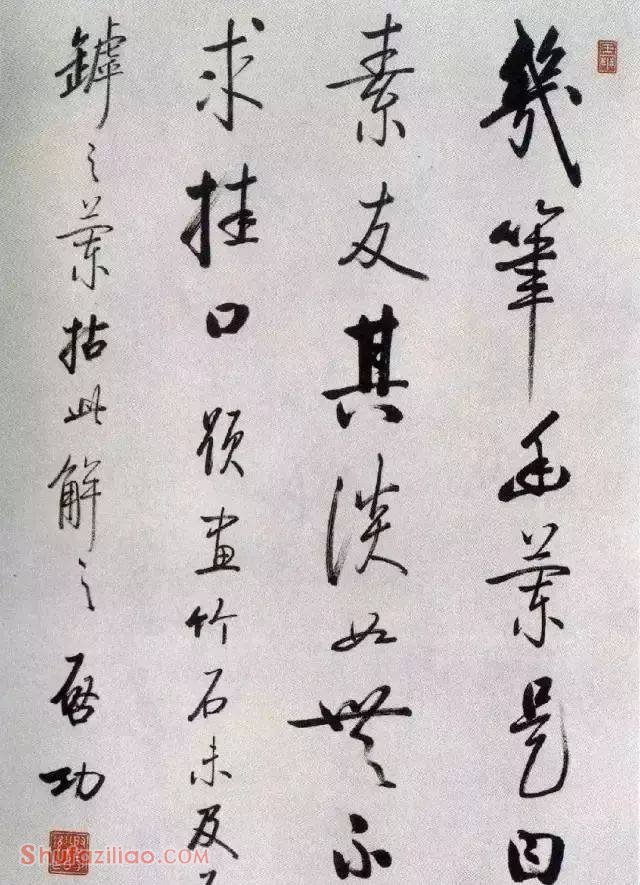 幾筆幽蘭是
素友其淡如無不
求挂口題畫竹石未及
罅之蘭拈此解之啟功
Shufaziliao.com